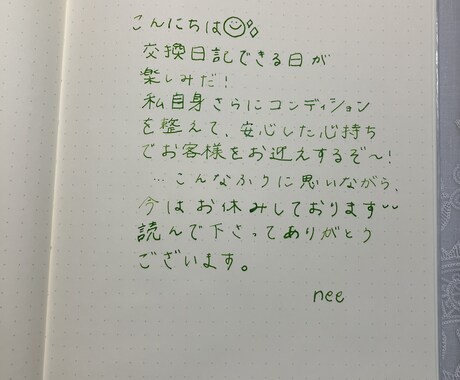 こんにちは☺
交換日記できる日が
楽しみだ!
私自身さらにコンディション
を整えて、安心した心持ち
でお客様をお迎えするぞ〜!
…こんなふりに思いながら、
今はお休みしております
読んで下さってありがとう
ございます。
nee